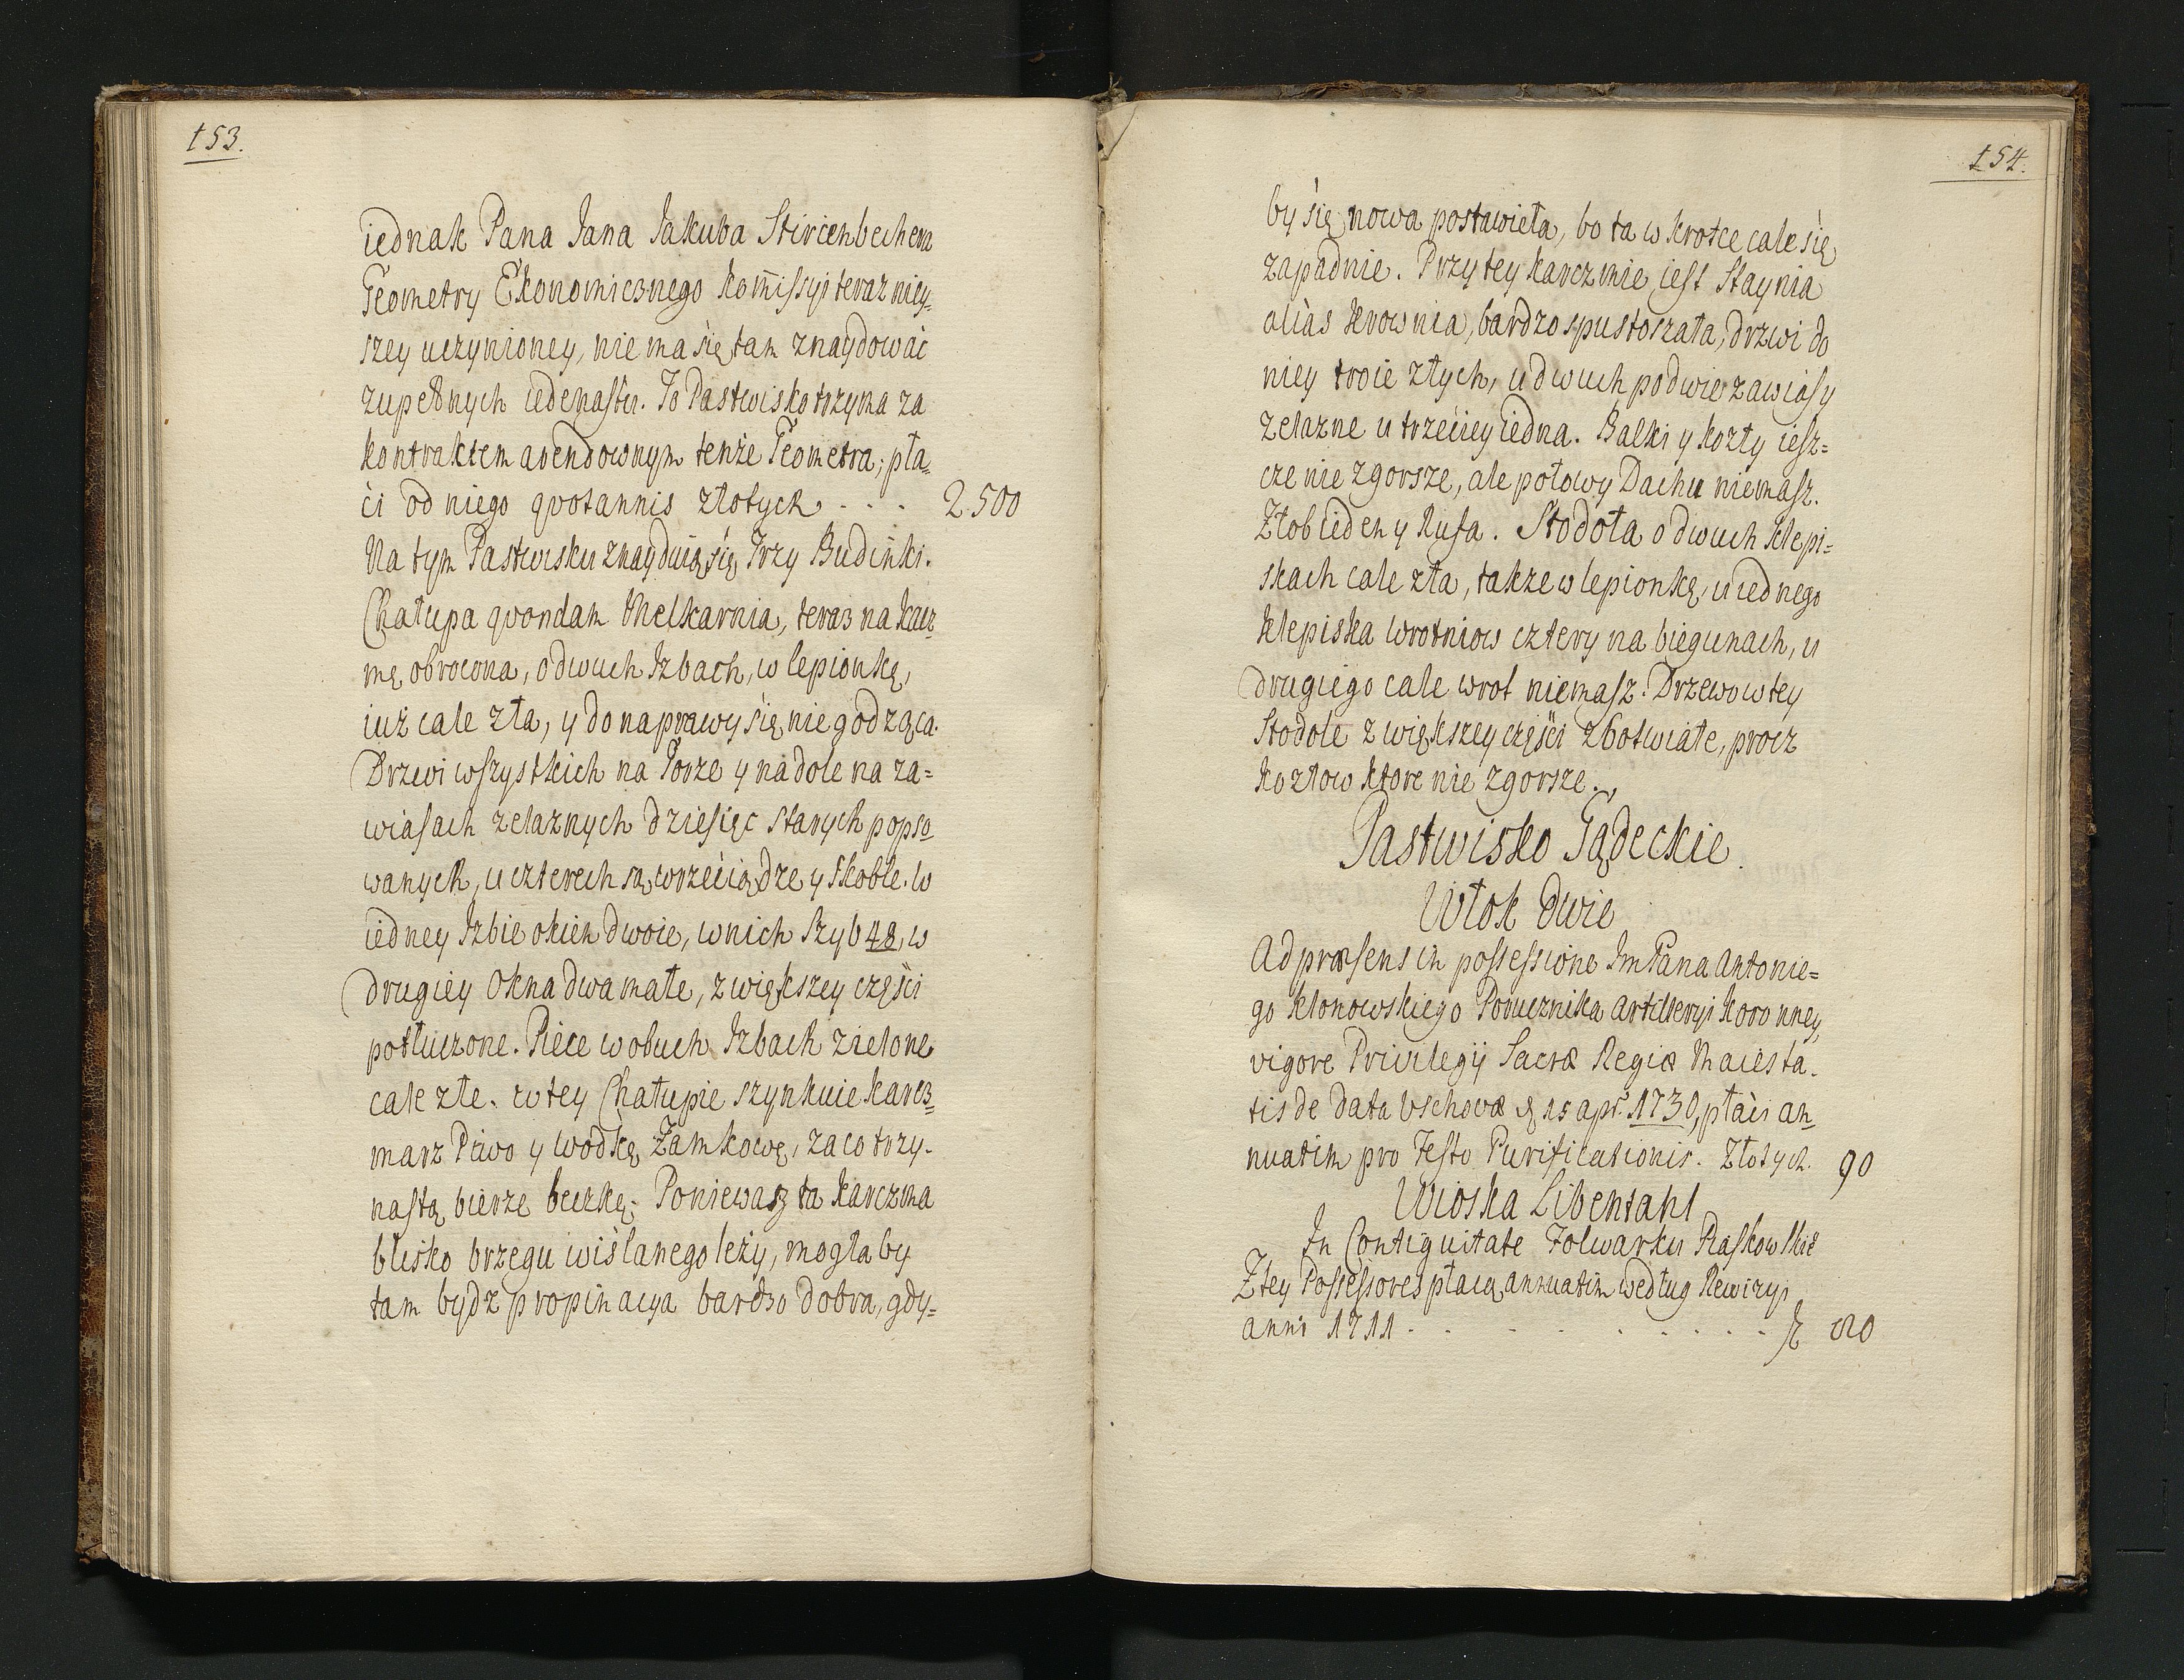 153.
iednak Pana Jana Jakuba Stircenbechera
Geometry Ekonomicznego Kom̃issyi teraz niey-
szey uczynioney, nie ma się tam znaydować
zupełnych iedenastu. To Pastwisko trzyma za
kontraktem arendownym tenże Geometra; pła-
ci od niego qvotannis złotych . . . 2500
Na tym Pastwisku znayduią się Trzy Budinki.
Chałupa qvondam Melkarnia, teraz na karcz-
mę obrocona, o dwuch Izbach, w lepionkę,
iuż cale zła, y do naprawy się nie godząca.
Drzwi wszystkich na Gorze y na dole na za=
wiasach zelaznych dziesięć starych popso-
wanych, u czterech są wrzeciądze y skoble. w
iedney Izbie okien dwoie, w nich szyb 48, w
drugiey Okna dwa małe, z większey części
potłuczone. Piece w obuch Izbach zielone
cale złe. w tey Chałupie szynkuie karcz=
marz Piwo y wodkę Zamkowę, za co trzy-
nastą bierze beczkę. Poniewasz ta karczma
blisko brzegu wiślanego leży, mogła by
tam bydz propinacya bardzo dobra, gdy=
154.
by się nowa postawieła, bo ta w krotce cale się
zapadnie. Przy tey karczmie iest Staynia
alias Krownia, bardzo spustoszała, drzwi do
niey troie złych, u dwuch po dwie zawiasy
zelazne u trzeciey iedna. Balki y kozły iesz=
cze nie zgorsze, ale połowy Dachu niemasz.
Złob ieden y Rufa. Stodoła o dwuch klepi=
skach cale zła, takze w lepionkę, u iednego
klepiska wrotniow cztery na biegunach, u
drugiego cale wrot niemasz. Drzewo w tey
Stodole z większey części zbotwiałe, procz
kozłow ktore nie zgorsze.
Pastwisko Gądeckie.
Włok dwie
Ad præsens in possessione ImPana Antonie=
go Klonowskiego Porucznika Artilleryi Koronney,
vigore Privilegij Sacræ Regiæ Maiesta-
tis de data Vschovæ 15 apr. 1730, płaci an-
nuatim pro Festo Purificationis. Złotych. 90
Wioska Libentahl
In Contiguitate Folwarku Piaskowskie
Z tey Possessores płacą annuatim według Rewizyi
anni 1711 . . . . . . . . .